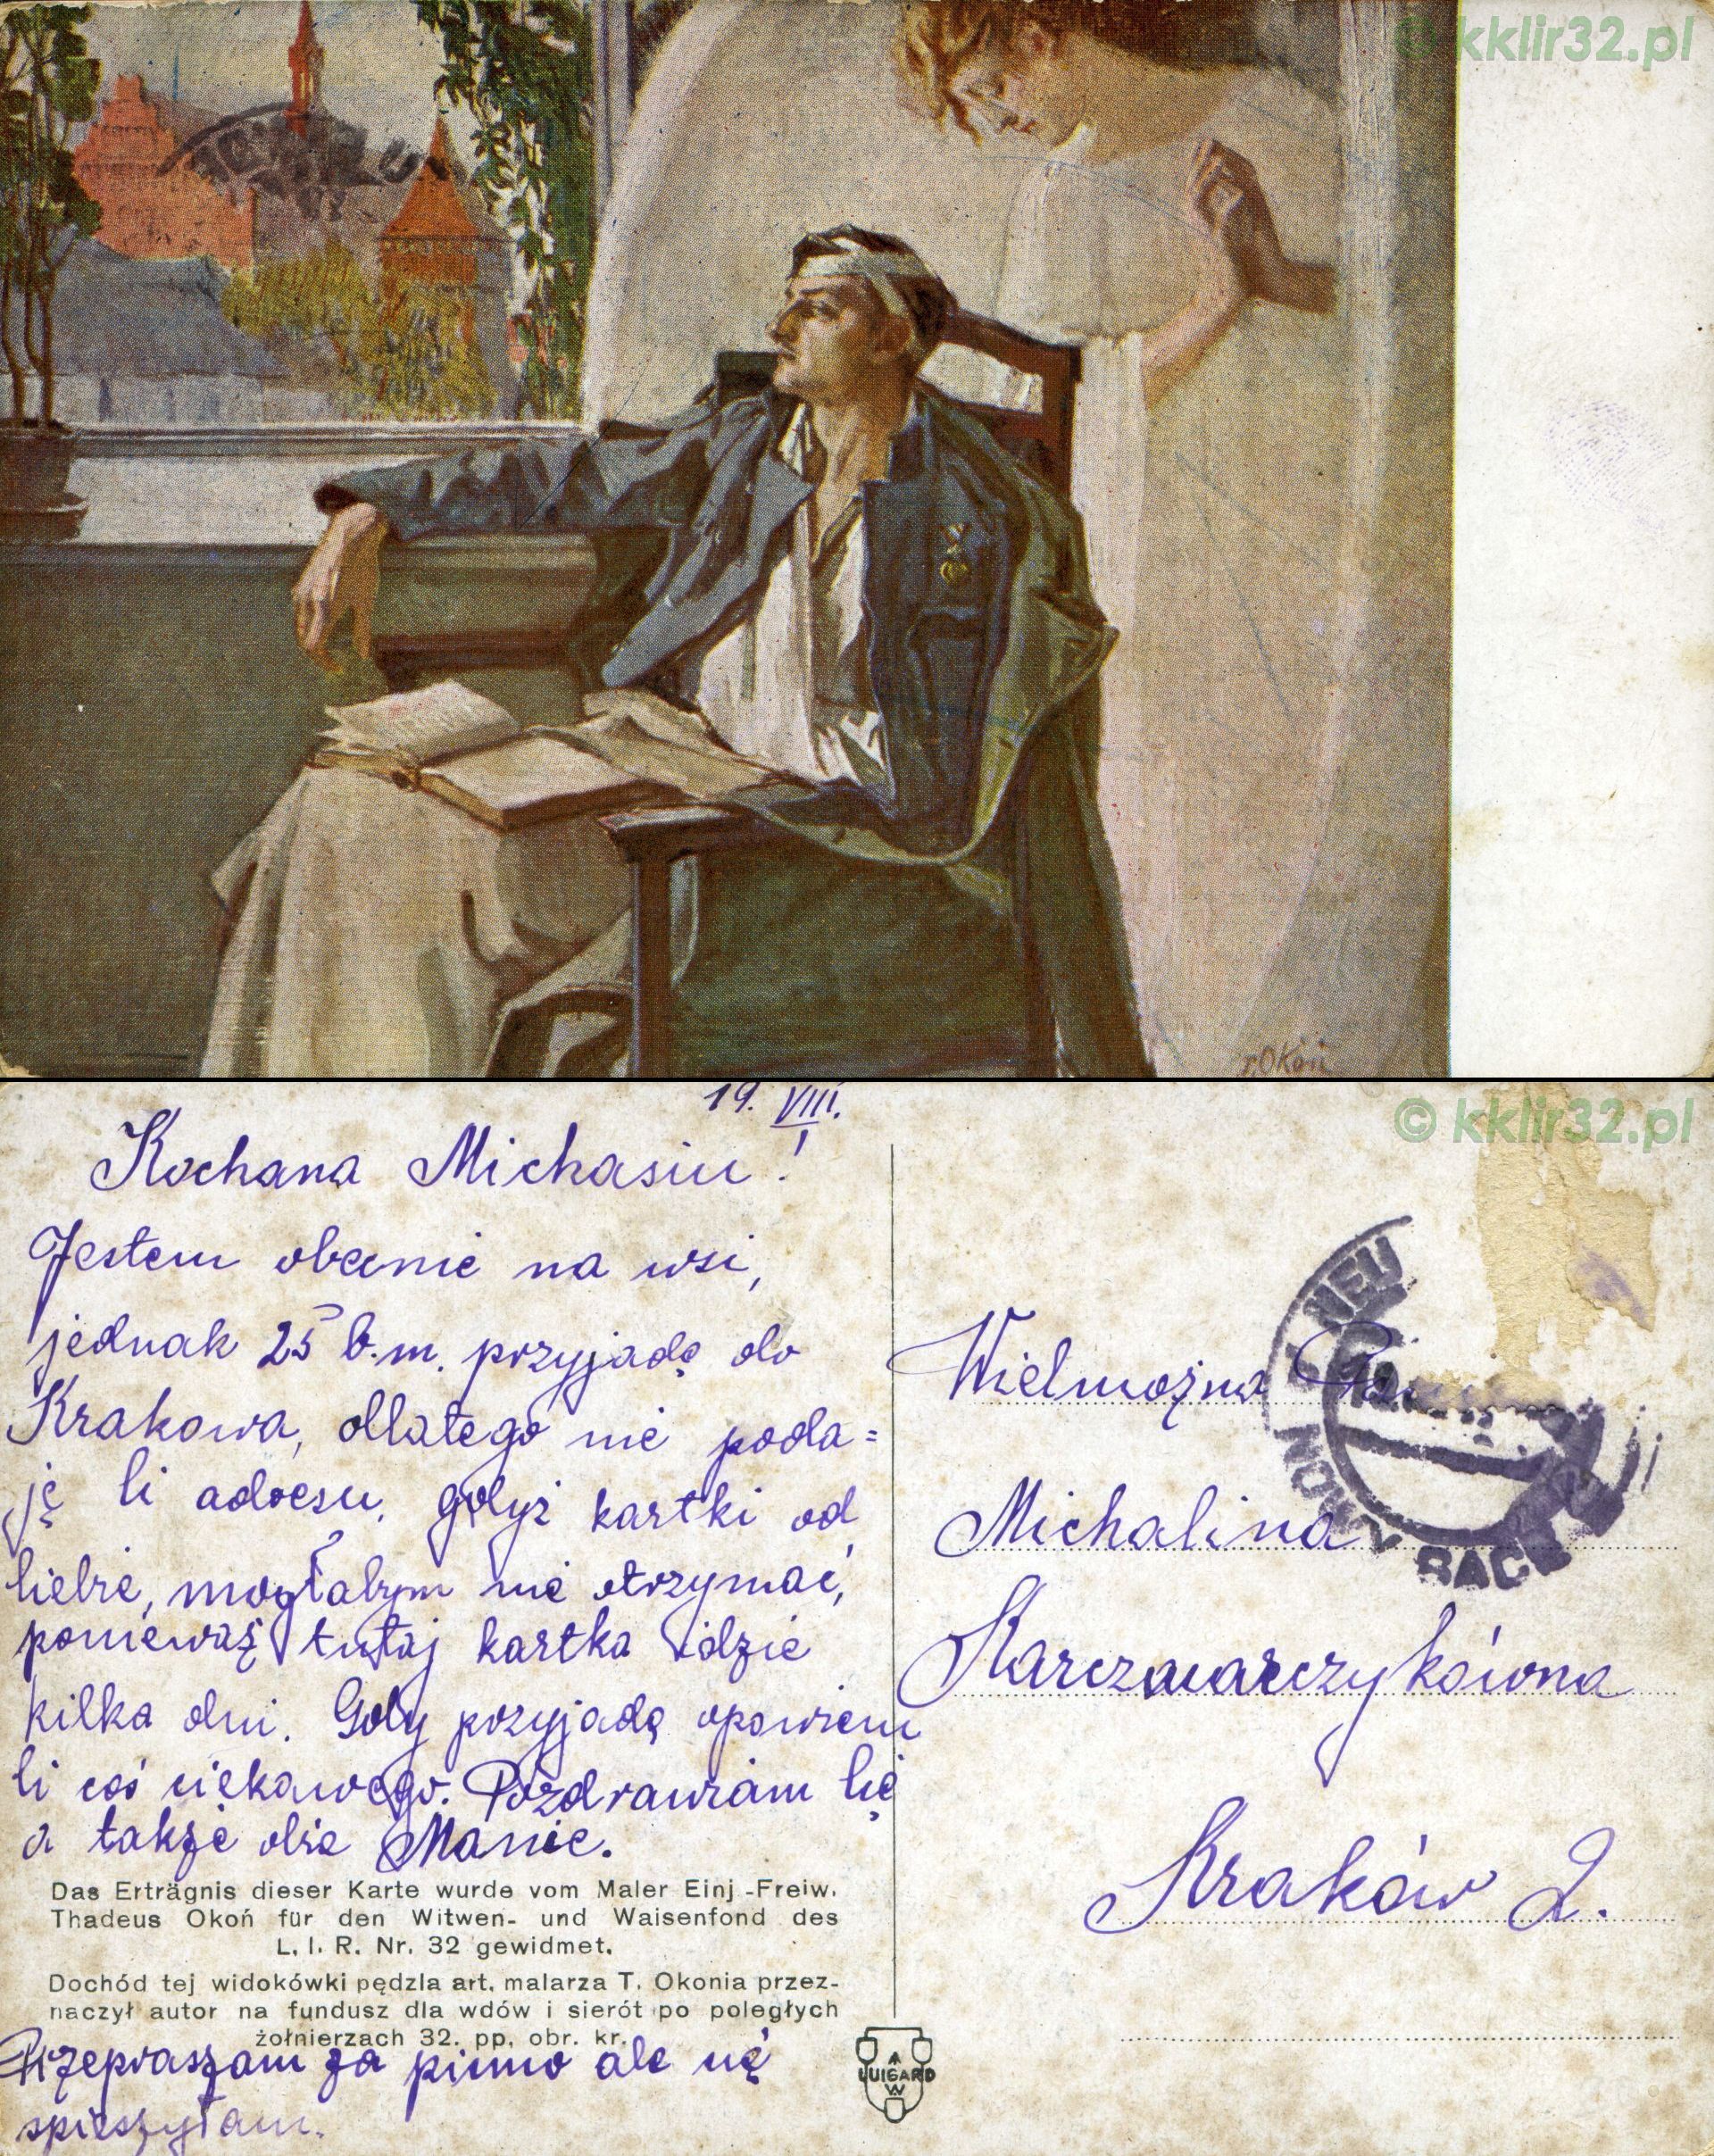 © kklir32.pl
T.Okoń
© kklir32.pl
19. VIII.
Kochana Michasiu!
Jestem obecnie na wsi,
jednak 25 b.m. przyjadę do
Krakowa, dlatego nie poda=
ję Ci adresu, gdyż kartki od
Ciebie, mogłabym nie otrzymać,
ponieważ tutaj kartka idzie
kilka dni. Gdy przyjadę opowiem
Ci coś ciekawego. Pozdrawiam Cię
a także obie Manie.
Das Erträgnis dieser Karte wurde vom Maler Einj.-Freiw.
Thadeus Okoń für den Witwen- und Waisenfond des
L. I. R. Nr. 32 gewidmet.
Dochód tej widokówki pędzla art. malarza T. Okonia przez-
naczył autor na fundusz dla wdów i sierót po poległych
żołnierzach 32. pp. obr. kr.
Przepraszam za pismo ale się
spieszyłam.
NEU
NOWY
BACH
Wielmożna
Michalina
Karczmarczykówna
Kraków 2.
LUIGARD
W